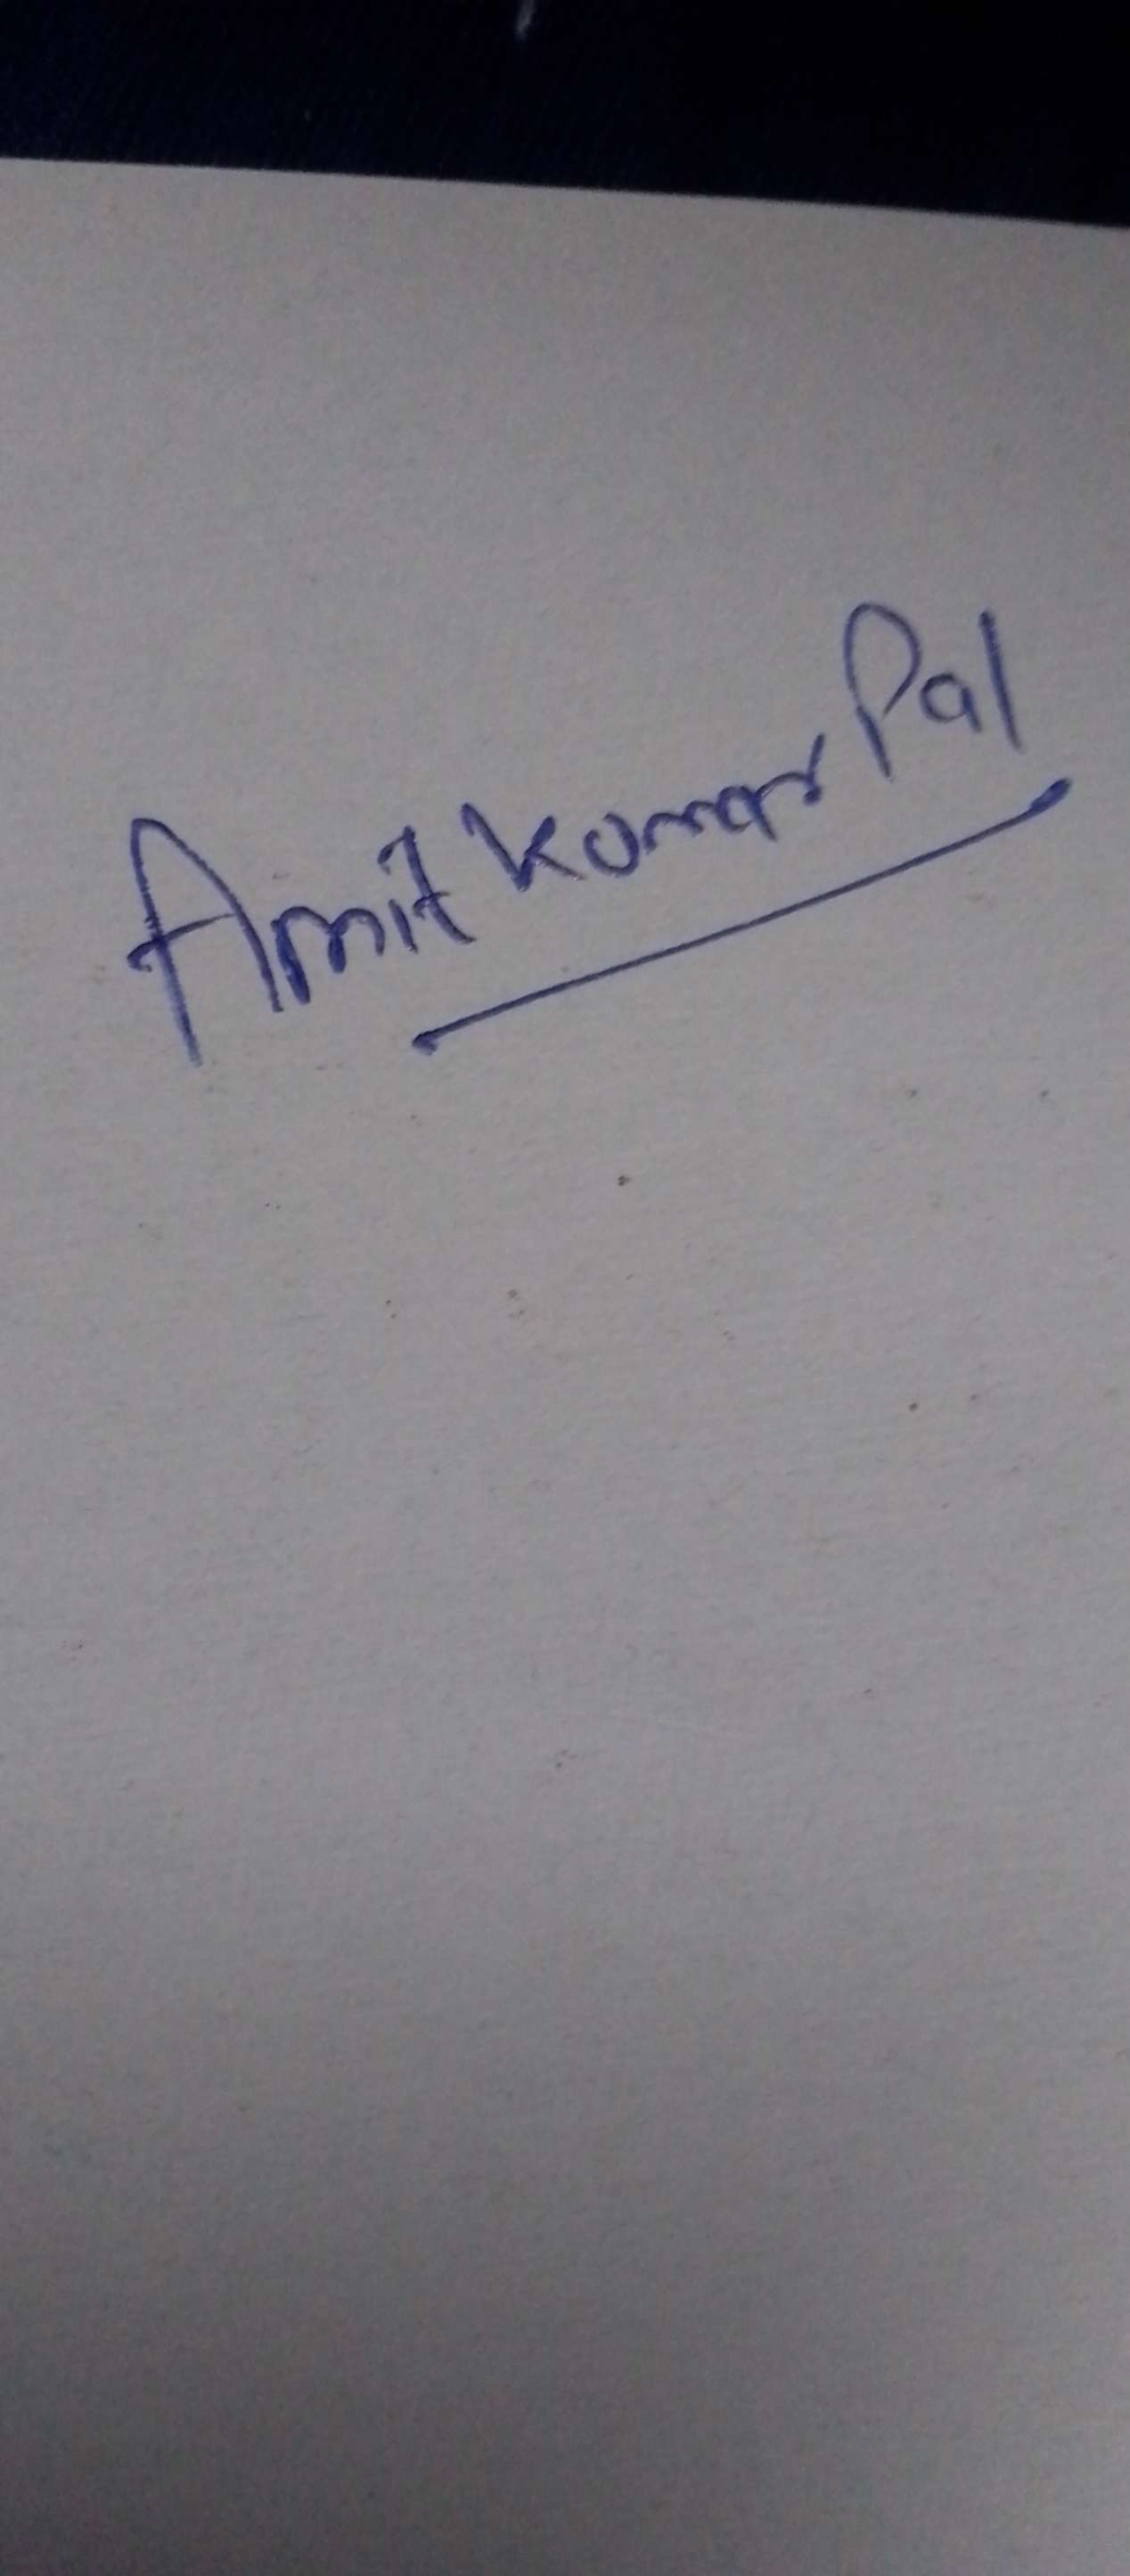 Amit kumar Pal